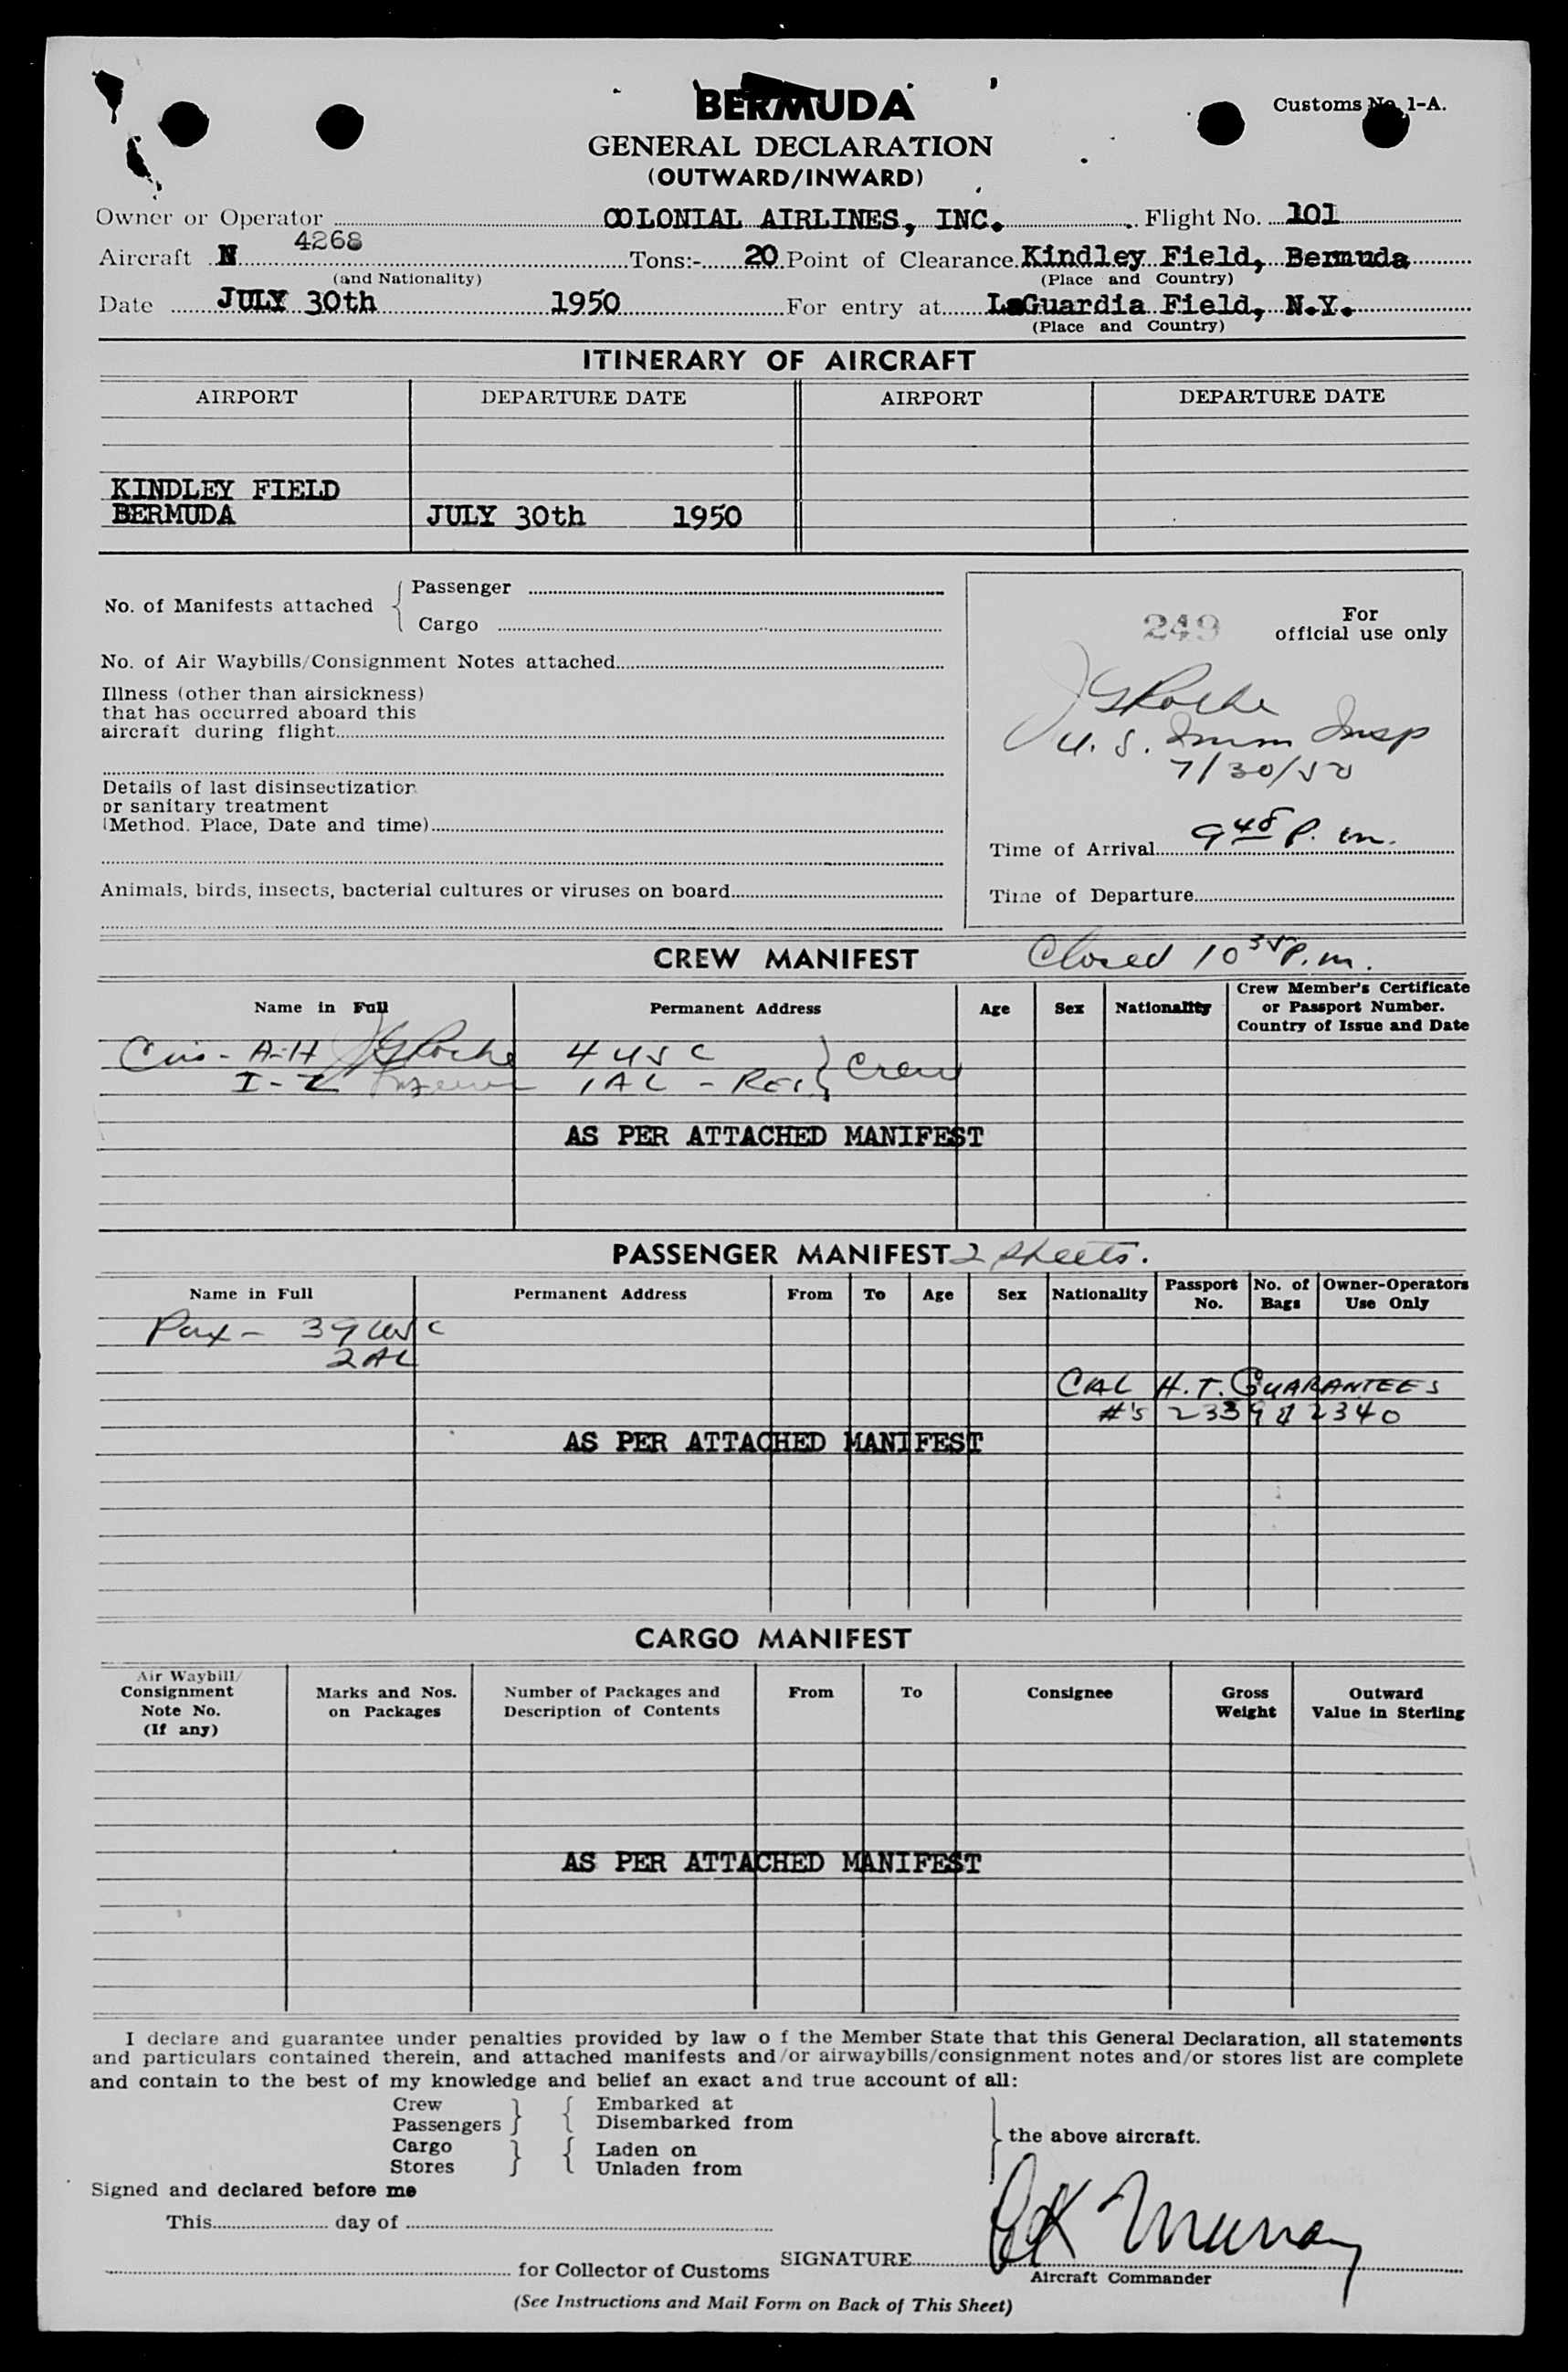 BERMUDA
Customs No. 1-A.
GENERAL DECLARATION
(OUTWARD/INWARD)
Owner or Operator COLONIAL AIRLINES, INC. Flight No. 101
Aircraft N 4268 Tons:- 20 Point of Clearance Kindley Field, Bermuda
(and Nationality) (Place and Country)
Date JULY 30th 1950 For entry at LaGuardia Field, N.Y.
(Place and Country)
ITINERARY OF AIRCRAFT
AIRPORT DEPARTURE DATE AIRPORT DEPARTURE DATE
KINDLEY FIELD
BERMUDA JULY 30th 1950
No. of Manifests attached { Passenger
Cargo
No. of Air Waybills/Consignment Notes attached
Illness (other than airsickness)
that has occurred aboard this
aircraft during flight
Details of last disinsectization
or sanitary treatment
(Method. Place, Date and time)
Animals, birds, insects, bacterial cultures or viruses on board
249 For
official use only
JGRoche
U.S. Imm Insp
7/30/50
Time of Arrival 9 48 P. m.
Time of Departure
CREW MANIFEST Closed 10 35 P.m.
Name in Full Permanent Address Age Sex Nationality Crew Member's Certificate
or Passport Number.
Country of Issue and Date
A-H JGRoche 4 USC } Crew
I-Z 1 AL -
AS PER ATTACHED MANIFEST
PASSENGER MANIFEST 2 sheets.
Name in Full Permanent Address From To Age Sex Nationality Passport
No. No. of
Bags Owner-Operators
Use Only
Pax - 39 USC
2 AL
CAL H.T. GUARANTEES
#'s 2339 & 2340
AS PER ATTACHED MANIFEST
CARGO MANIFEST
Air Waybill/
Consignment
Note No.
(If any) Marks and Nos.
on Packages Number of Packages and
Description of Contents From To Consignee Gross
Weight Outward
Value in Sterling
AS PER ATTACHED MANIFEST
I declare and guarantee under penalties provided by law o f the Member State that this General Declaration, all statements
and particulars contained therein, and attached manifests and/or airwaybills/consignment notes and/or stores list are complete
and contain to the best of my knowledge and belief an exact and true account of all:
Crew } { Embarked at
Passengers Disembarked from
Cargo } { Laden on
Stores Unladen from
} the above aircraft.
Signed and declared before me
This day of
for Collector of Customs SIGNATURE CK Murray
Aircraft Commander
(See Instructions and Mail Form on Back of This Sheet)